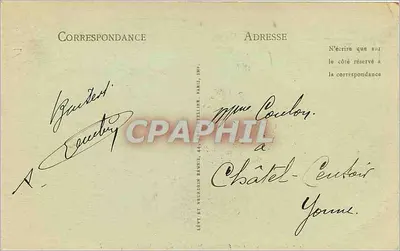 CORRESPONDANCE
ADRESSE
N'écrire que sur
le côté réservé à
la correspondance
CPAPHIL
Mme Coulon
à
Châtel-Censoir
Yonne.
LÉVY ET NEURDEIN RÉUNIS, 44, RUE LETELLIER, PARIS, IMP.